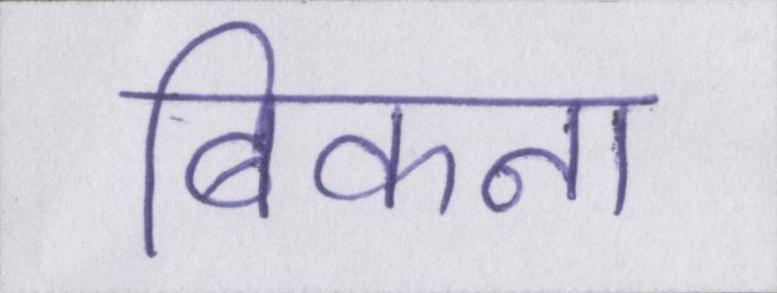 बिकना